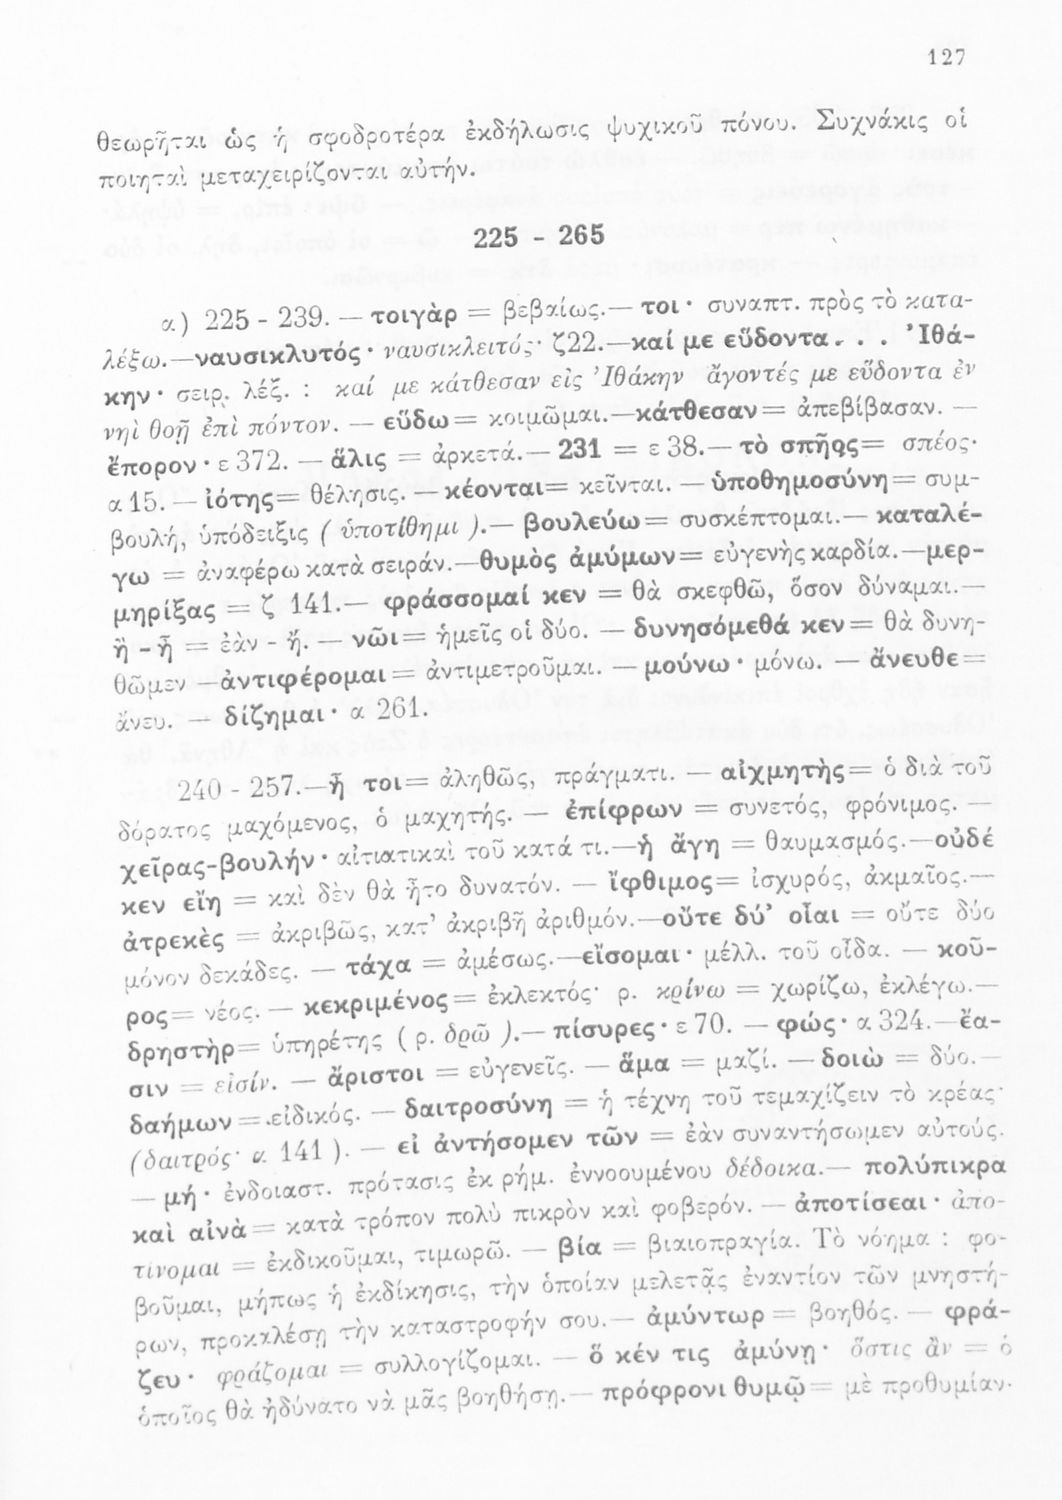 127
θεωρῆται ὡς ἡ σφοδροτέρα ἐκδήλωσις ψυχικοῦ πόνου. Συχνάκις οἱ
ποιηταὶ μεταχειρίζονται αὐτήν.
225 - 265
α) 225 - 239. — τοιγὰρ = βεβαίως.— τοι· συναπτ. πρὸς τὸ κατα-
λέξω.—ναυσικλυτός· ναυσικλειτός· ζ22.—καί με εὕδοντα. . . Ἰθά-
κην· σειρ. λέξ. : καί με κάτθεσαν εἰς Ἰθάκην ἄγοντές με εὕδοντα ἐν
νηὶ θοῇ ἐπὶ πόντον. — εὕδω= κοιμῶμαι.—κάτθεσαν= ἀπεβίβασαν. —
ἔπορον· ε 372. — ἅλις = ἀρκετά.— 231 = ε 38.— τὸ σπῆος= σπέος·
α 15. — ἰότης= θέλησις. — κέονται= κεῖνται. — ὑποθημοσύνη= συμ-
βουλή, ὑπόδειξις ( ὑποτίθημι ).— βουλεύω= συσκέπτομαι.— καταλέ-
γω = ἀναφέρω κατὰ σειράν.—θυμὸς ἀμύμων= εὐγενὴς καρδία.—μερ-
μηρίξας = ζ 141.— φράσσομαί κεν = θὰ σκεφθῶ, ὅσον δύναμαι.—
ἢ - ἦ = ἐὰν - ἤ. — νῶι= ἡμεῖς οἱ δύο. — δυνησόμεθά κεν= θὰ δυνη-
θῶμεν —ἀντιφέρομαι= ἀντιμετροῦμαι. — μούνω· μόνω. — ἄνευθε=
ἄνευ. — δίζημαι· α 261.
240 - 257.—ἦ τοι= ἀληθῶς, πράγματι. — αἰχμητὴς= ὁ διὰ τοῦ
δόρατος μαχόμενος, ὁ μαχητής. — ἐπίφρων = συνετός, φρόνιμος. —
χεῖρας-βουλήν· αἰτιατικαὶ τοῦ κατά τι.—ἡ ἄγη = θαυμασμός.—οὐδέ
κεν εἴη = καὶ δὲν θὰ ἦτο δυνατόν. — ἴφθιμος= ἰσχυρός, ἀκμαῖος.—
ἀτρεκὲς = ἀκριβῶς, κατ' ἀκριβῆ ἀριθμόν.—οὔτε δύ' οἶαι = οὔτε δύο
μόνον δεκάδες. — τάχα = ἀμέσως.—εἴσομαι· μέλλ. τοῦ οἶδα. — κοῦ-
ρος= νέος. — κεκριμένος= ἐκλεκτός· ρ. κρίνω = χωρίζω, ἐκλέγω.—
δρηστὴρ= ὑπηρέτης ( ρ. δρῶ ).— πίσυρες· ε 70. — φώς· α 324.—ἔα-
σιν = εἰσίν. — ἄριστοι = εὐγενεῖς. — ἅμα = μαζί. — δοιὼ = δύο.—
δαήμων=.εἰδικός. — δαιτροσύνη = ἡ τέχνη τοῦ τεμαχίζειν τὸ κρέας·
(δαιτρός· α 141 ). — εἰ ἀντήσομεν τῶν = ἐὰν συναντήσωμεν αὐτούς.
— μή· ἐνδοιαστ. πρότασις ἐκ ρήμ. ἐννοουμένου δέδοικα.— πολύπικρα
καὶ αἰνὰ= κατὰ τρόπον πολὺ πικρὸν καὶ φοβερόν. — ἀποτίσεαι· ἀπο-
τίνομαι = ἐκδικοῦμαι, τιμωρῶ. — βία = βιαιοπραγία. Τὸ νόημα : φο-
βοῦμαι, μήπως ἡ ἐκδίκησις, τὴν ὁποίαν μελετᾷς ἐναντίον τῶν μνηστή-
ρων, προκαλέσῃ τὴν καταστροφήν σου.— ἀμύντωρ = βοηθός. — φρά-
ζευ· φράζομαι = συλλογίζομαι. — ὅ κέν τις ἀμύνῃ· ὅστις ἂν = ὁ
ὁποῖος θὰ ἠδύνατο νὰ μᾶς βοηθήσῃ.— πρόφρονι θυμῷ= μὲ προθυμίαν.